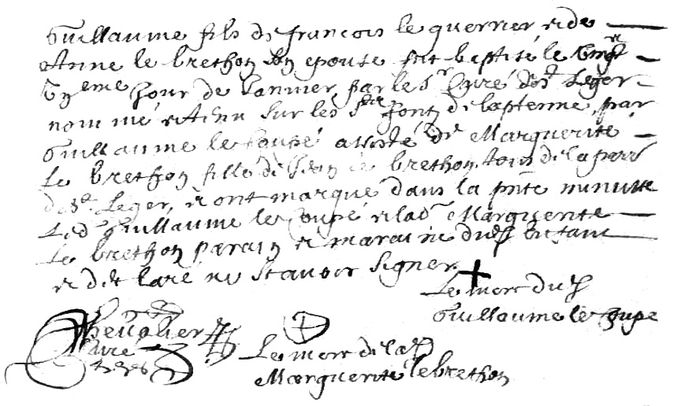 Guillaume fils de francois le guerrier et de
Anne le brethon son epouse fut baptisé le vingt
unieme Jour de Janvier par le Sr Curé de St Leger
nommé et tenu sur les Sts fonts de baptesme par
Guillaume le Coupé assisté de Marguerite
le brethon fille de Jean le brethon tous de la parr
de St Leger, et ont marqué dans la pnte minutte
Led. Guillaume le Coupé et lad. Marguerite
le brethon parain et maraine dud. enfant
et declaré ne scavoir signer
Le merc dud.
Guillaume le Coupé
Chevalier
Curé
Le merc de lad.
Marguerite le brethon